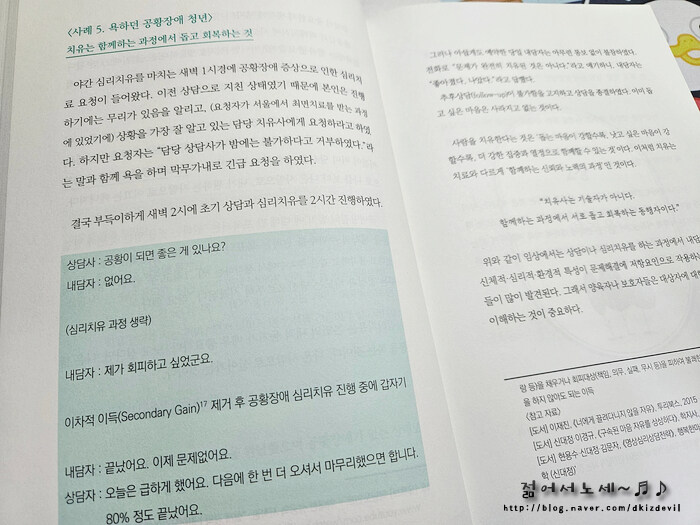 〈사례 5. 욕하던 공황장애 청년〉
치유는 함께하는 과정에서 돕고 회복하는 것
야간 심리치유를 마치는 새벽 1시경에 공황장애 증상으로 인한 심리치
료 요청이 들어왔다. 이전 상담으로 지친 상태였기 때문에 본인은 진행
하기에는 무리가 있음을 알리고, (요청자가 서울에서 최면치료를 받는 과정
에 있었기에) 상황을 가장 잘 알고 있는 담당 치유사에게 요청하라고 하였
다. 하지만 요청자는 “담당 상담사가 밤에는 불가하다고 거부하였다.”라
는 말과 함께 욕을 하며 막무가내로 긴급 요청을 하였다.
결국 부득이하게 새벽 2시에 초기 상담과 심리치유를 2시간 진행하였다.
상담사 : 공황이 되면 좋은 게 있나요?
내담자 : 없어요.
(심리치유 과정 생략)
내담자 : 제가 회피하고 싶었군요.
이차적 이득(Secondary Gain)17 제거 후 공황장애 심리치유 진행 중에 갑자기
내담자 : 끝났어요. 이제 문제없어요.
상담자 : 오늘은 급하게 했어요. 다음에 한 번 더 오셔서 마무리했으면 합니다.
80% 정도 끝났어요.
그러나 아쉽게도 예약한 당일 내담자는 아무런 통보 없이 불참하였다.
전화로 “문제가 완전히 치유된 것은 아니다.”라고 얘기하니, 내담자는
“좋아졌다. 나았다.”라고 답했다.
추후상담(follow-up)이 불가함을 고지하고 상담을 종결하였다. 이미 돕
고 싶은 마음은 사라지고 없는 것이다.
사람을 치유한다는 것은 ‘돕는 마음이 강할수록, 낫고 싶은 마음이 강
할수록, 더 강한 집중과 열정으로 함께할 수 있는 것’이다. 이처럼 치유는
치료와 다르게 ‘함께하는 신뢰와 노력의 과정’인 것이다.
“치유사는 기술자가 아니다.
함께하는 과정에서 서로 돕고 회복하는 동행자이다.”
위와 같이 임상에서는 상담이나 심리치유를 하는 과정에서 내담
신체적·심리적·환경적 특성이 문제해결에 저항요인으로 작용하는
들이 많이 발견된다. 그래서 양육자나 보호자들은 대상자에 대
이해하는 것이 중요하다.
람 등)을 채우거나 회피대상(책임, 의무, 실패, 무시 등)을 피하여 불쾌
을 하지 않아도 되는 이득
〈참고 자료〉
[도서] 이재진, 《너에게 끌려다니지 않을 자유》, 투리북스, 2015
[도서] 신대정 이경규, 《구속된 마음 자유를 상상하다》, 학지사,
[도서] 현용수 신대정 김문자, 《명상심리상담전략》, 행복한마
학 (신대정)’
젊어서노세~♬♪
http://blog.naver.com/dkizdevil